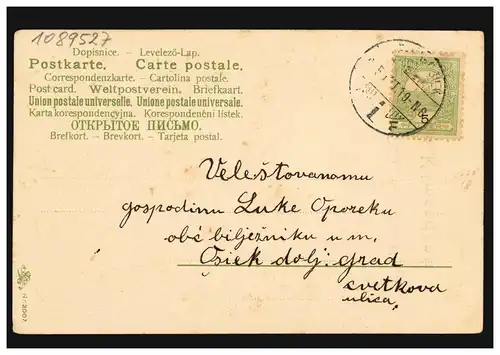 1089527
Dopisnice. – Levelező-Lap.
Postkarte. Carte postale.
Correspondenzkarte. – Cartolina postale.
Post card. Weltpostverein. Briefkaart.
Union postale universelle. Unione postale universale.
Karta korespondencyjna. Korespondenční lístek.
ОТКРЫТОЕ ПИСЬМО.
Brefkort. – Brevkort. – Tarjeta postal.
Veleštovanamu
gospodinu Luke Oporeku
obć bilježniku u m.
Osiek dolj. grad
cvetkova
ulica.